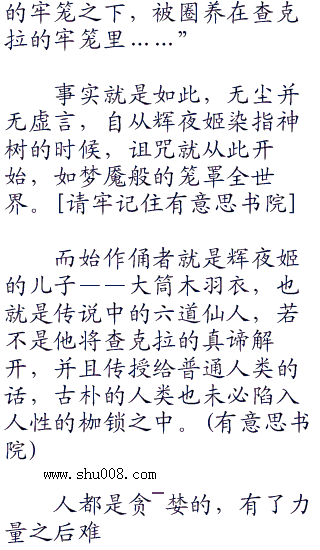 的牢笼之下，被圈养在查克
拉的牢笼里……”
事实就是如此，无尘并
无虚言，自从辉夜姬染指神
树的时候，诅咒就从此开
始，如梦魇般的笼罩全世
界。[请牢记住有意思书院]
而始作俑者就是辉夜姬
的儿子——大筒木羽衣，也
就是传说中的六道仙人，若
不是他将查克拉的真谛解
开，并且传授给普通人类的
话，古朴的人类也未必陷入
人性的枷锁之中。(有意思书
院)
www.shu008.com
人都是贪¯婪的，有了力
量之后难